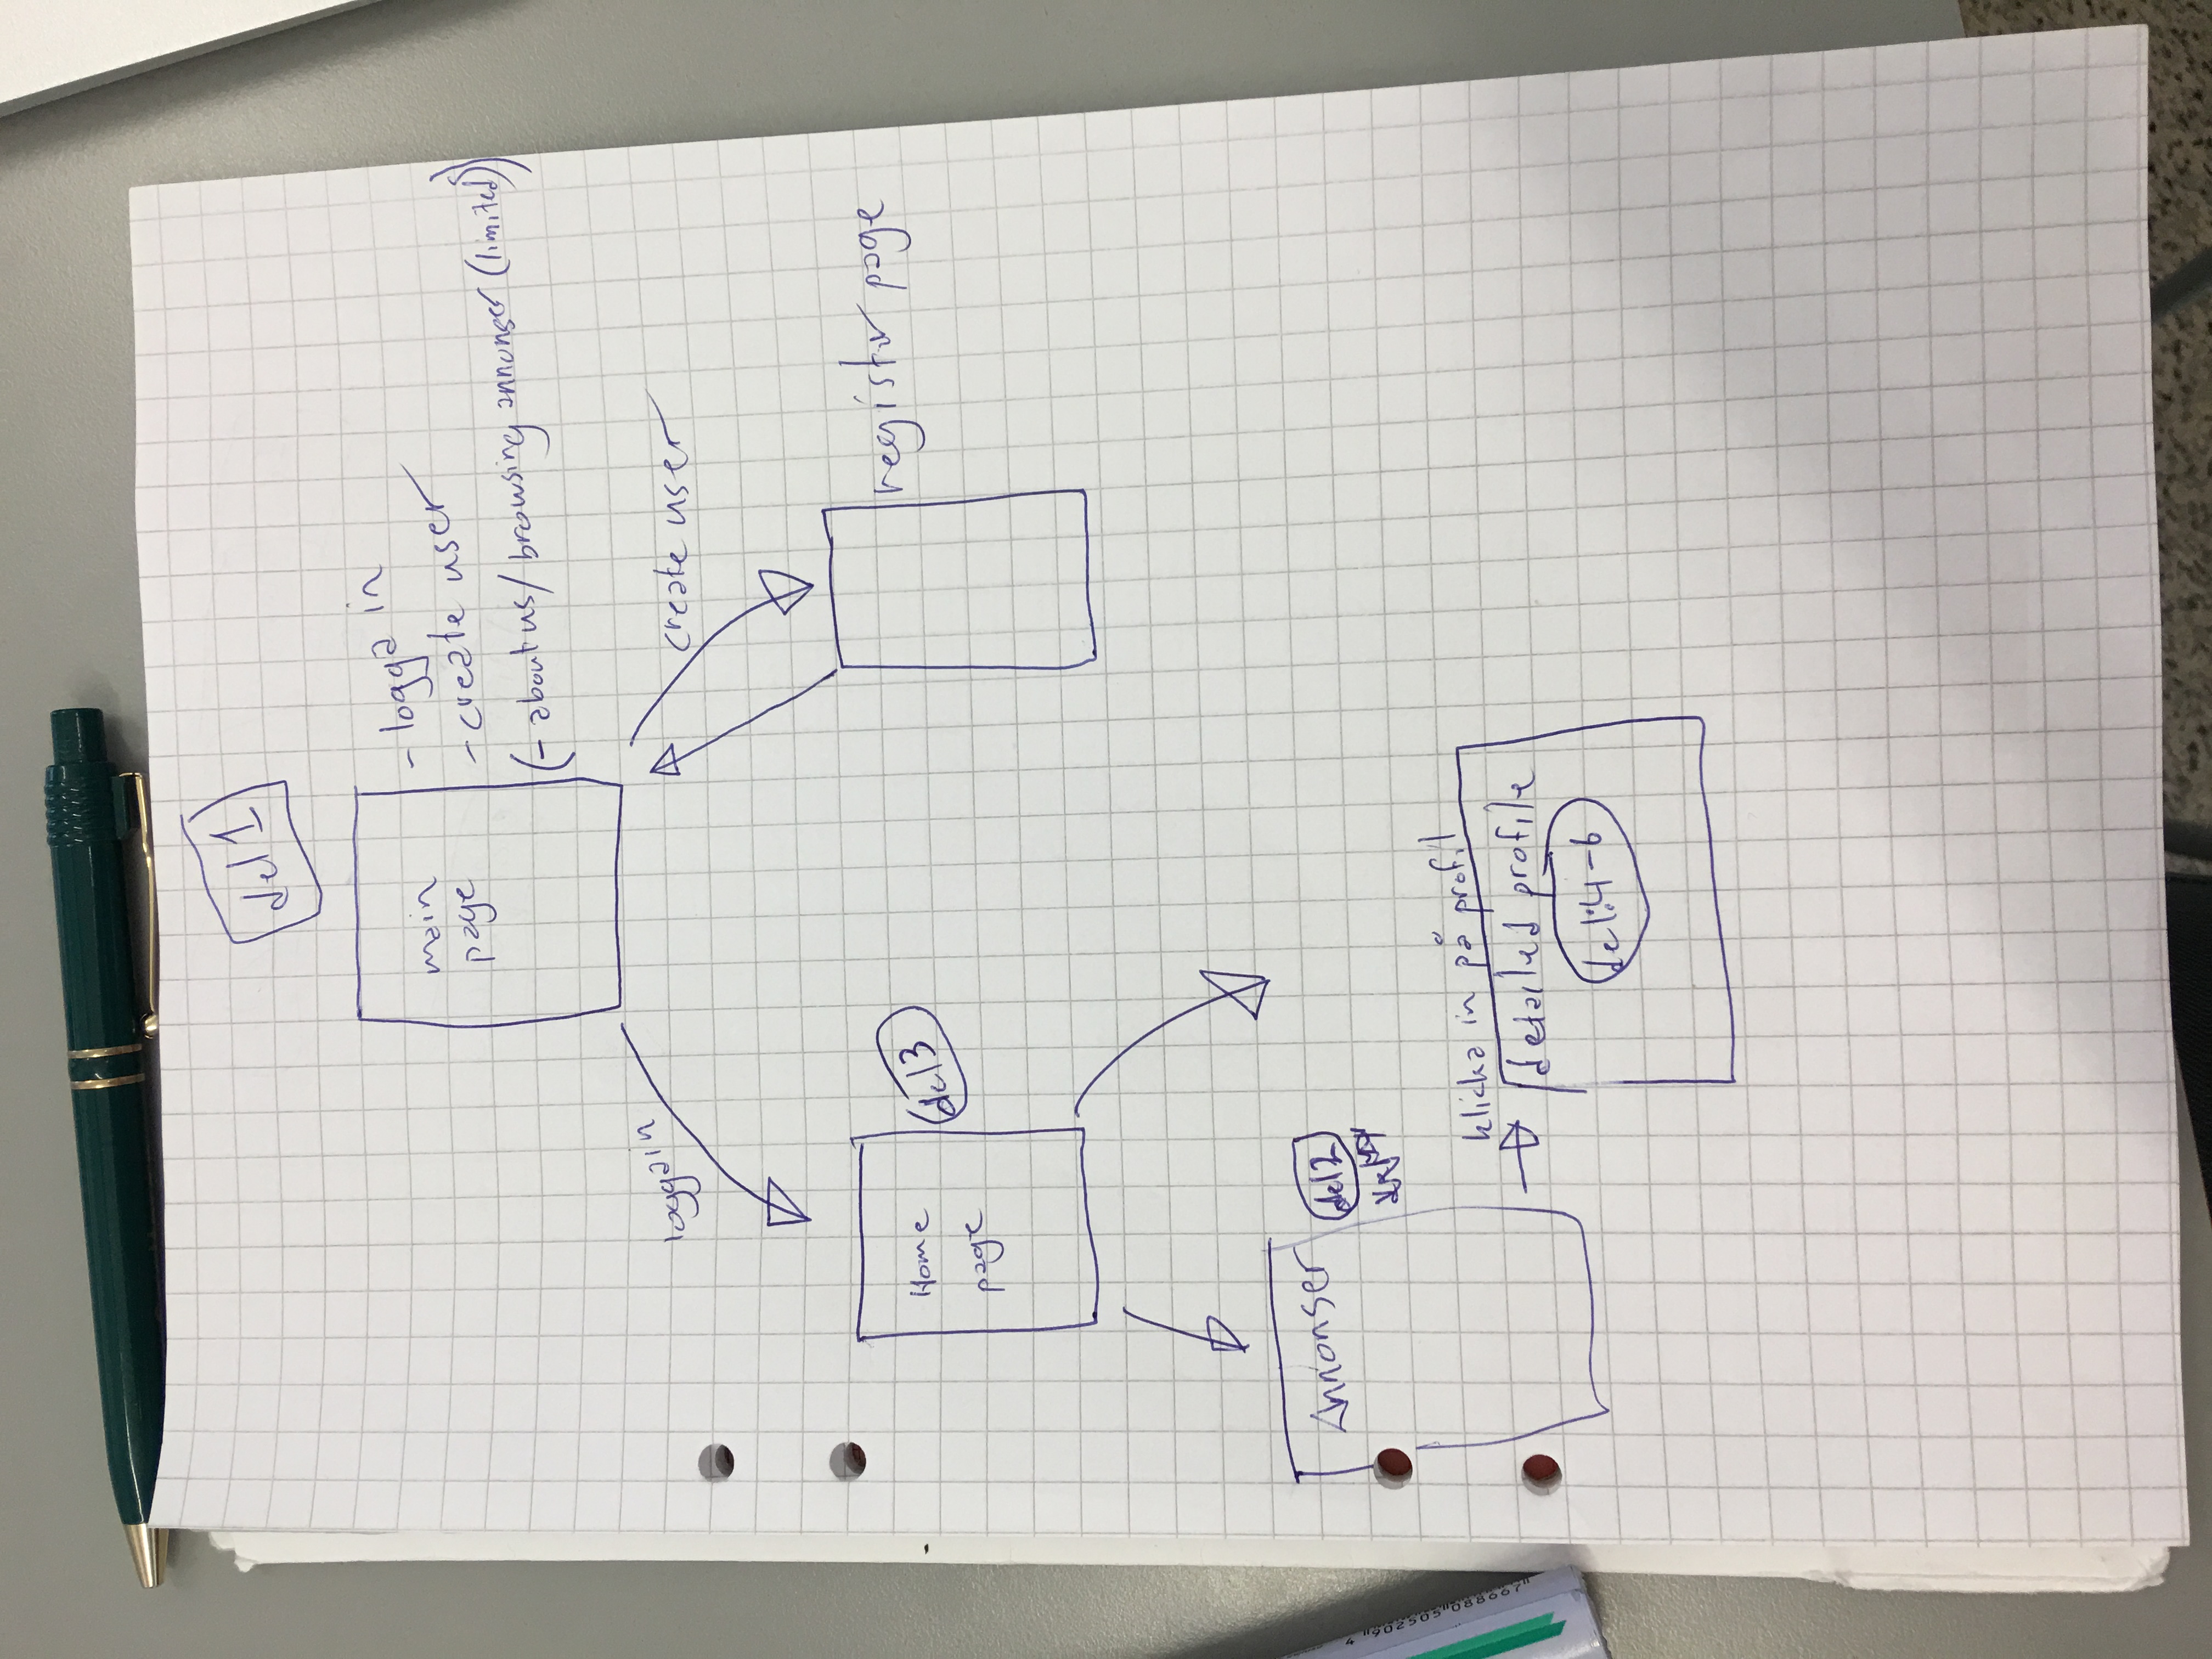 del 1
main
page
- logga in
- create user
(- about us / browsing annonser (limited))
logga in
create user
Home
page
del 3
register page
Annonser
del 2
klicka in på profil
detailed profile
del: 4-6